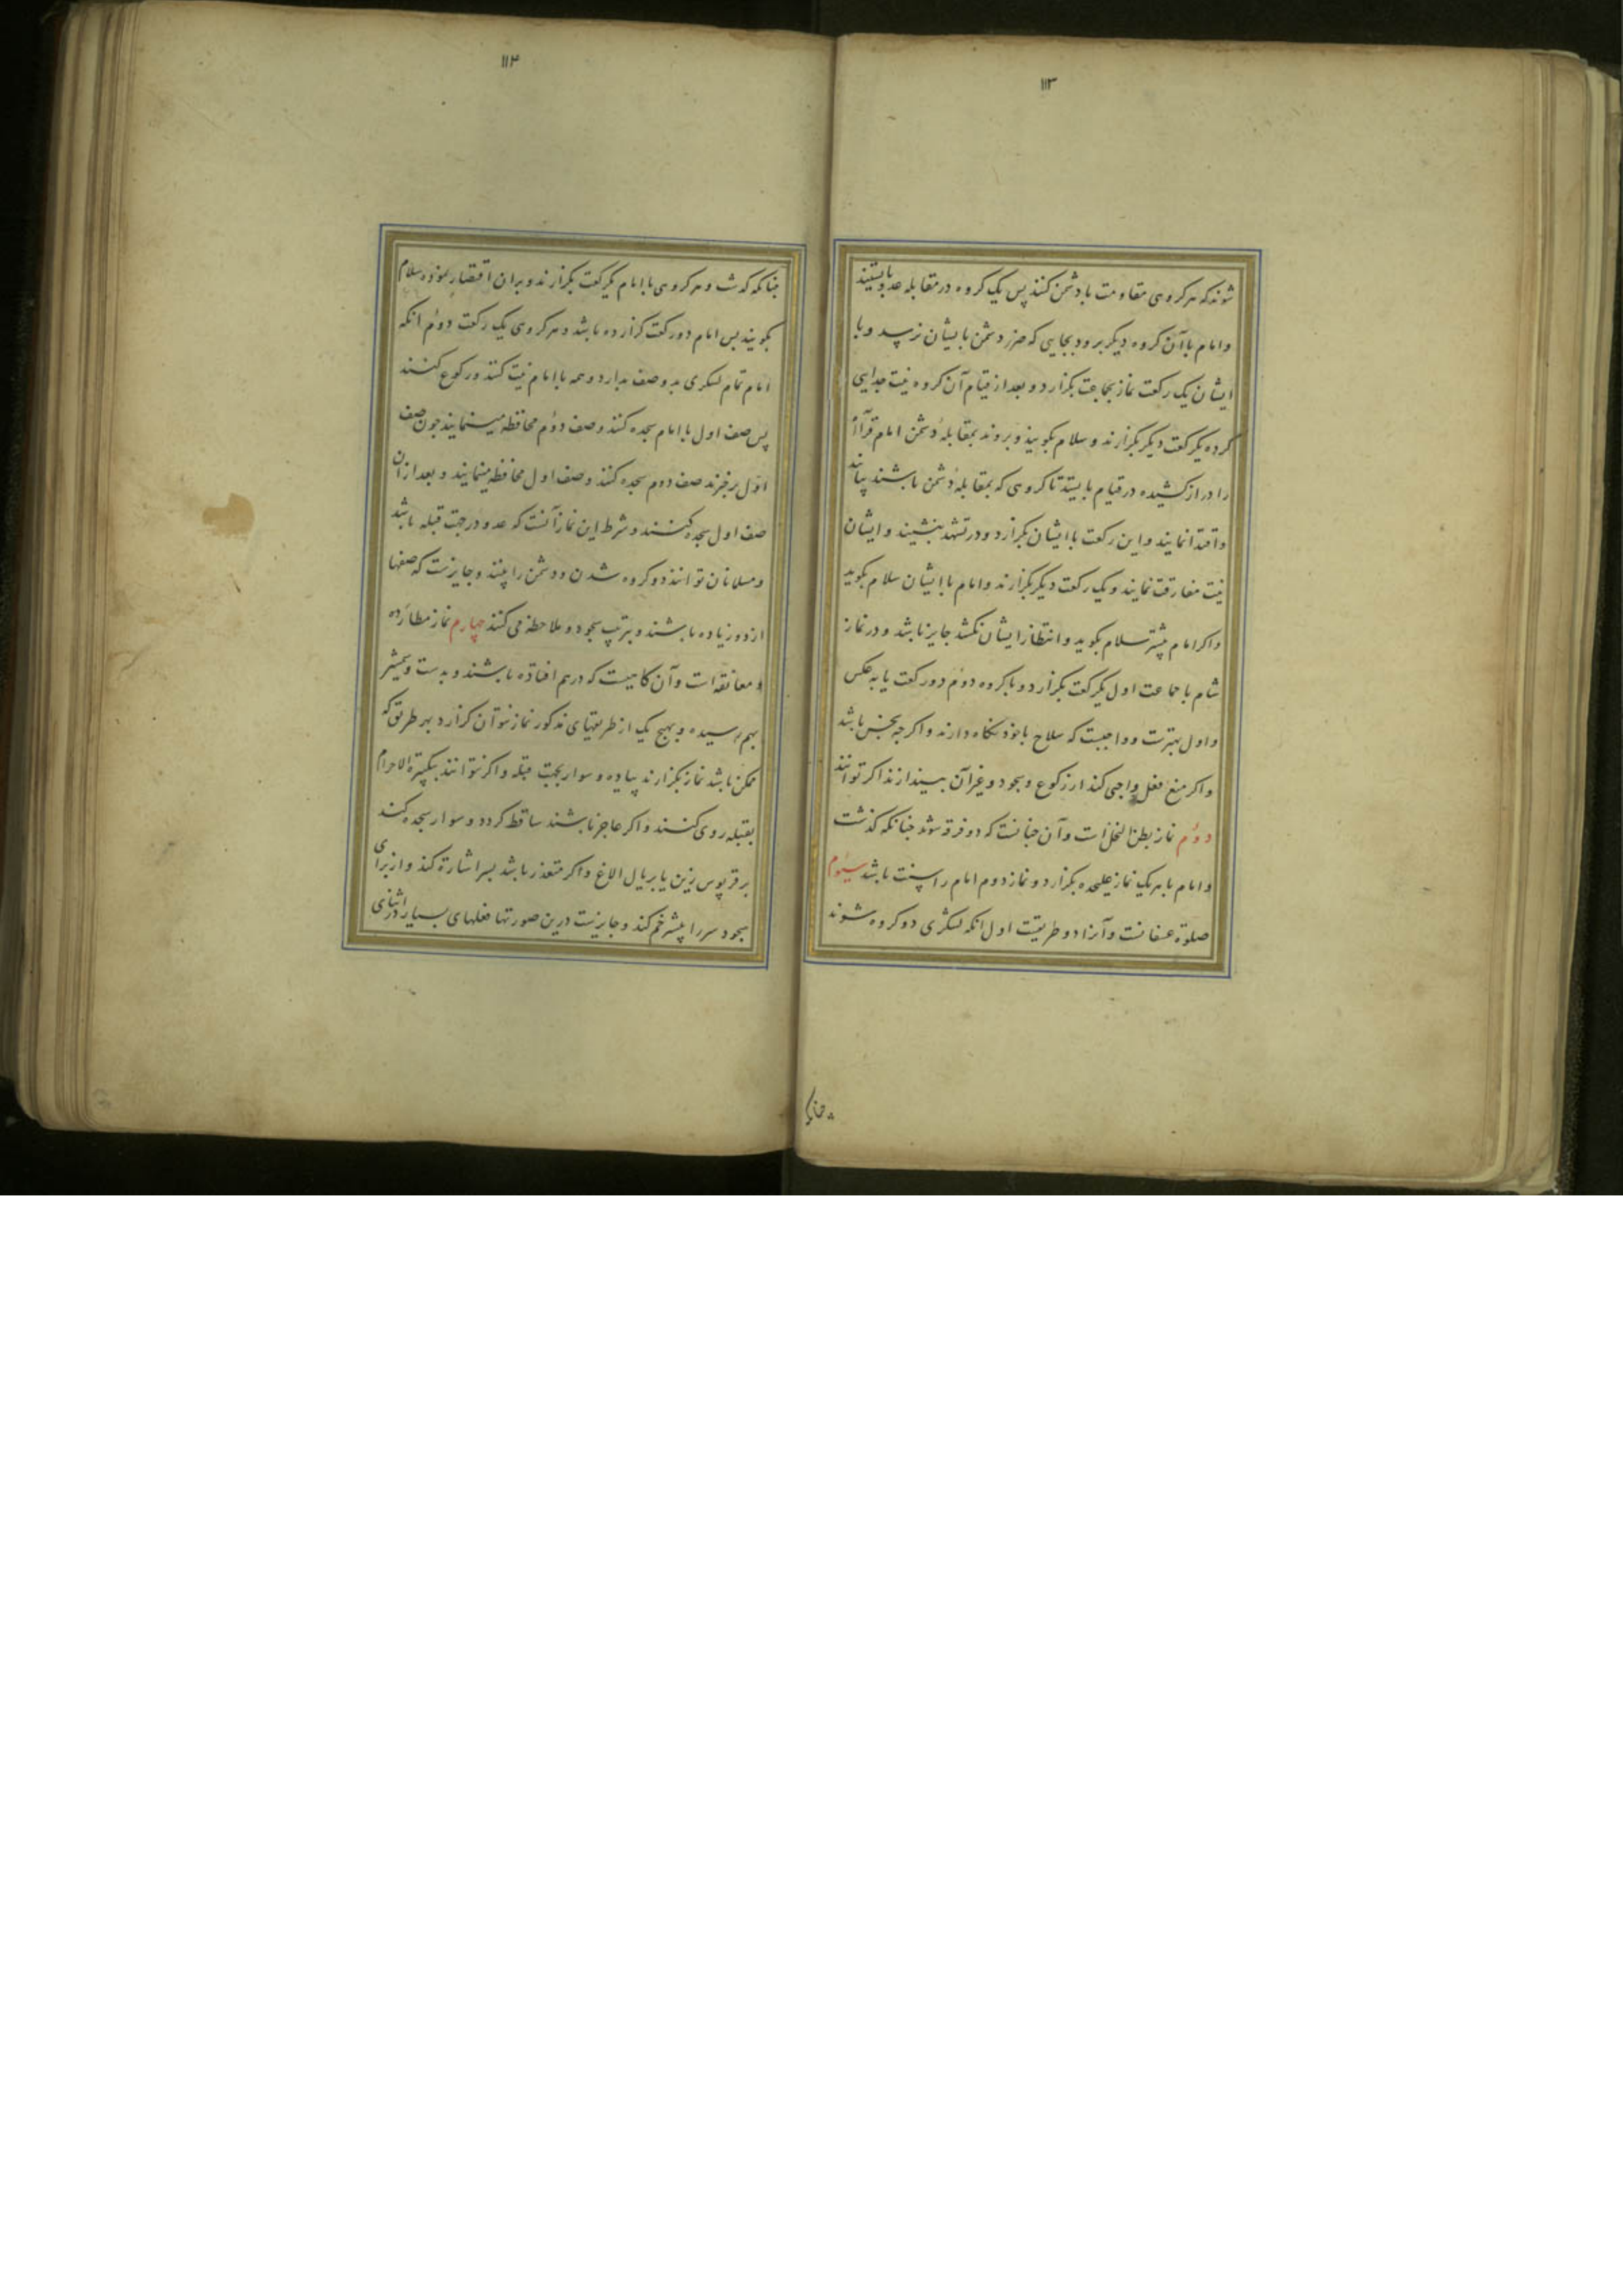 ۱۱۳
شوند که هر کروهی مقاومت با دشمن کنند پس یک کروه در مقابله عدو بایستند
و امام با آن کروه دیکر برود بجایی که ضرر دشمن بایشان نرسد و با
ایشان یک رکعت نماز بجماعت بکزارد و بعد از قیام آن کروه نیت جدایی
کرده یکرکعت دیکر بکزارند و سلام بکویند و بروند بمقابلهٔ دشمن امام قرآءة
را دراز کشیده در قیام بایستد تا کروهی که بمقابلهٔ دشمن باشند بیایند
و اقتدا نمایند و این رکعت با ایشان بکزارد و در تشهد بنشیند و ایشان
نیت مفارقت نمایند و یک رکعت دیکر بکزارند و امام با ایشان سلام بکوید
و اکر امام پیشتر سلام بکوید و انتظار ایشان نکشد جایز باشد و در نماز
شام با جماعت اول یکرکعت بکزارد و با کروه دوم دو رکعت یا به عکس
و اول بهترست و واجبست که سلاح با خود نکاه دارند و اکرچه نجس باشد
و اکر منع فعل واجبی کند از رکوع و سجود و غیر آن بیندازند اکر توانند
دوم نماز بطن النخل است و آن چنانست که دو فرقه شوند چنانکه کذشت
و امام با هر یک نماز علیحده بکزارد و نماز دوم امام را سنت باشد سیوم
صلوة عسفانست و آنرا دو طریقست اول انکه لشکری دو کروه شوند
۱۱۴
چنانکه کذشت و هر کروهی با امام یکرکعت بکزارند و بران اقتصار نموده سلام
بکویند پس امام دو رکعت کزارده باشد و هر کروهی یک رکعت دوم انکه
امام تمام لشکری بدو صف بدارد و همه با امام نیت کنند و رکوع کنند
پس صف اول با امام سجده کنند و صف دوم محافظه مینمایند چون صف
اول برخیزند صف دوم سجده کنند و صف اول محافظه مینمایند و بعد از آن
صف اول سجده کنند و شرط این نماز آنست که عدو در جهت قبله باشد
و مسلمانان توانند دو کروه شدن و دشمن را بینند و جایزست که صفها
از دو زیاده باشند و بترتیب سجود و ملاحظه می کنند چهارم نماز مطارده
و معانقه است و آن کاهیست که درهم افتاده باشند و بدست و شمشیر
بهم رسیده و بهیچ یک از طریقهای مذکور نماز نتوان کزارد بهر طریق که
ممکن باشد نماز بکزارند پیاده و سوار بجهت قبله و اکر نتوانند بتکبیرة الاحرام
بقبله روی کنند و اکر عاجز باشند ساقط کردد و سوار سجده کند
بر قرپوس زین یا بر یال الاغ و اکر متعذر باشد بسر اشارة کند و از برای
سجود سر را بیشتر خم کند و جایزست درین صورتها فعلهای بسیار در اثنای